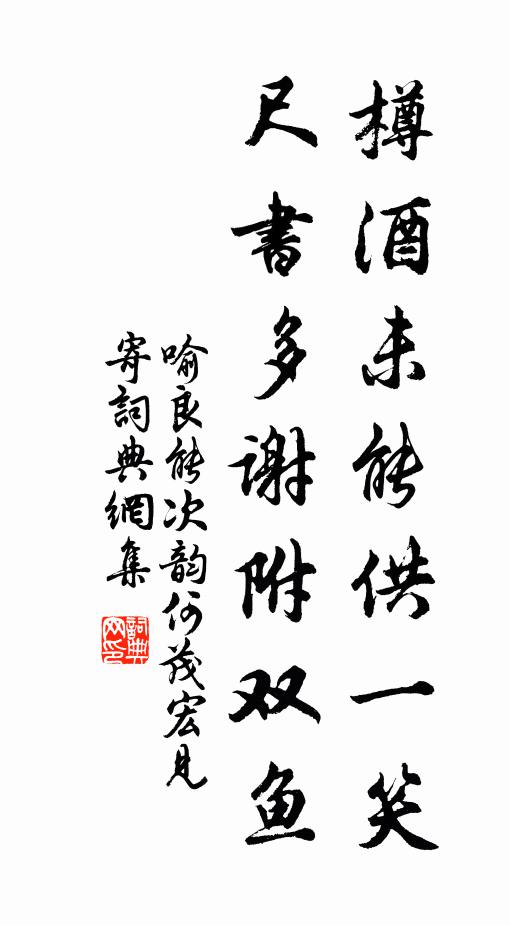 樽酒未能供一笑
尺書多谢附双鱼
喻良能次韵何茂宏見
寄詞典網集
詞典网印